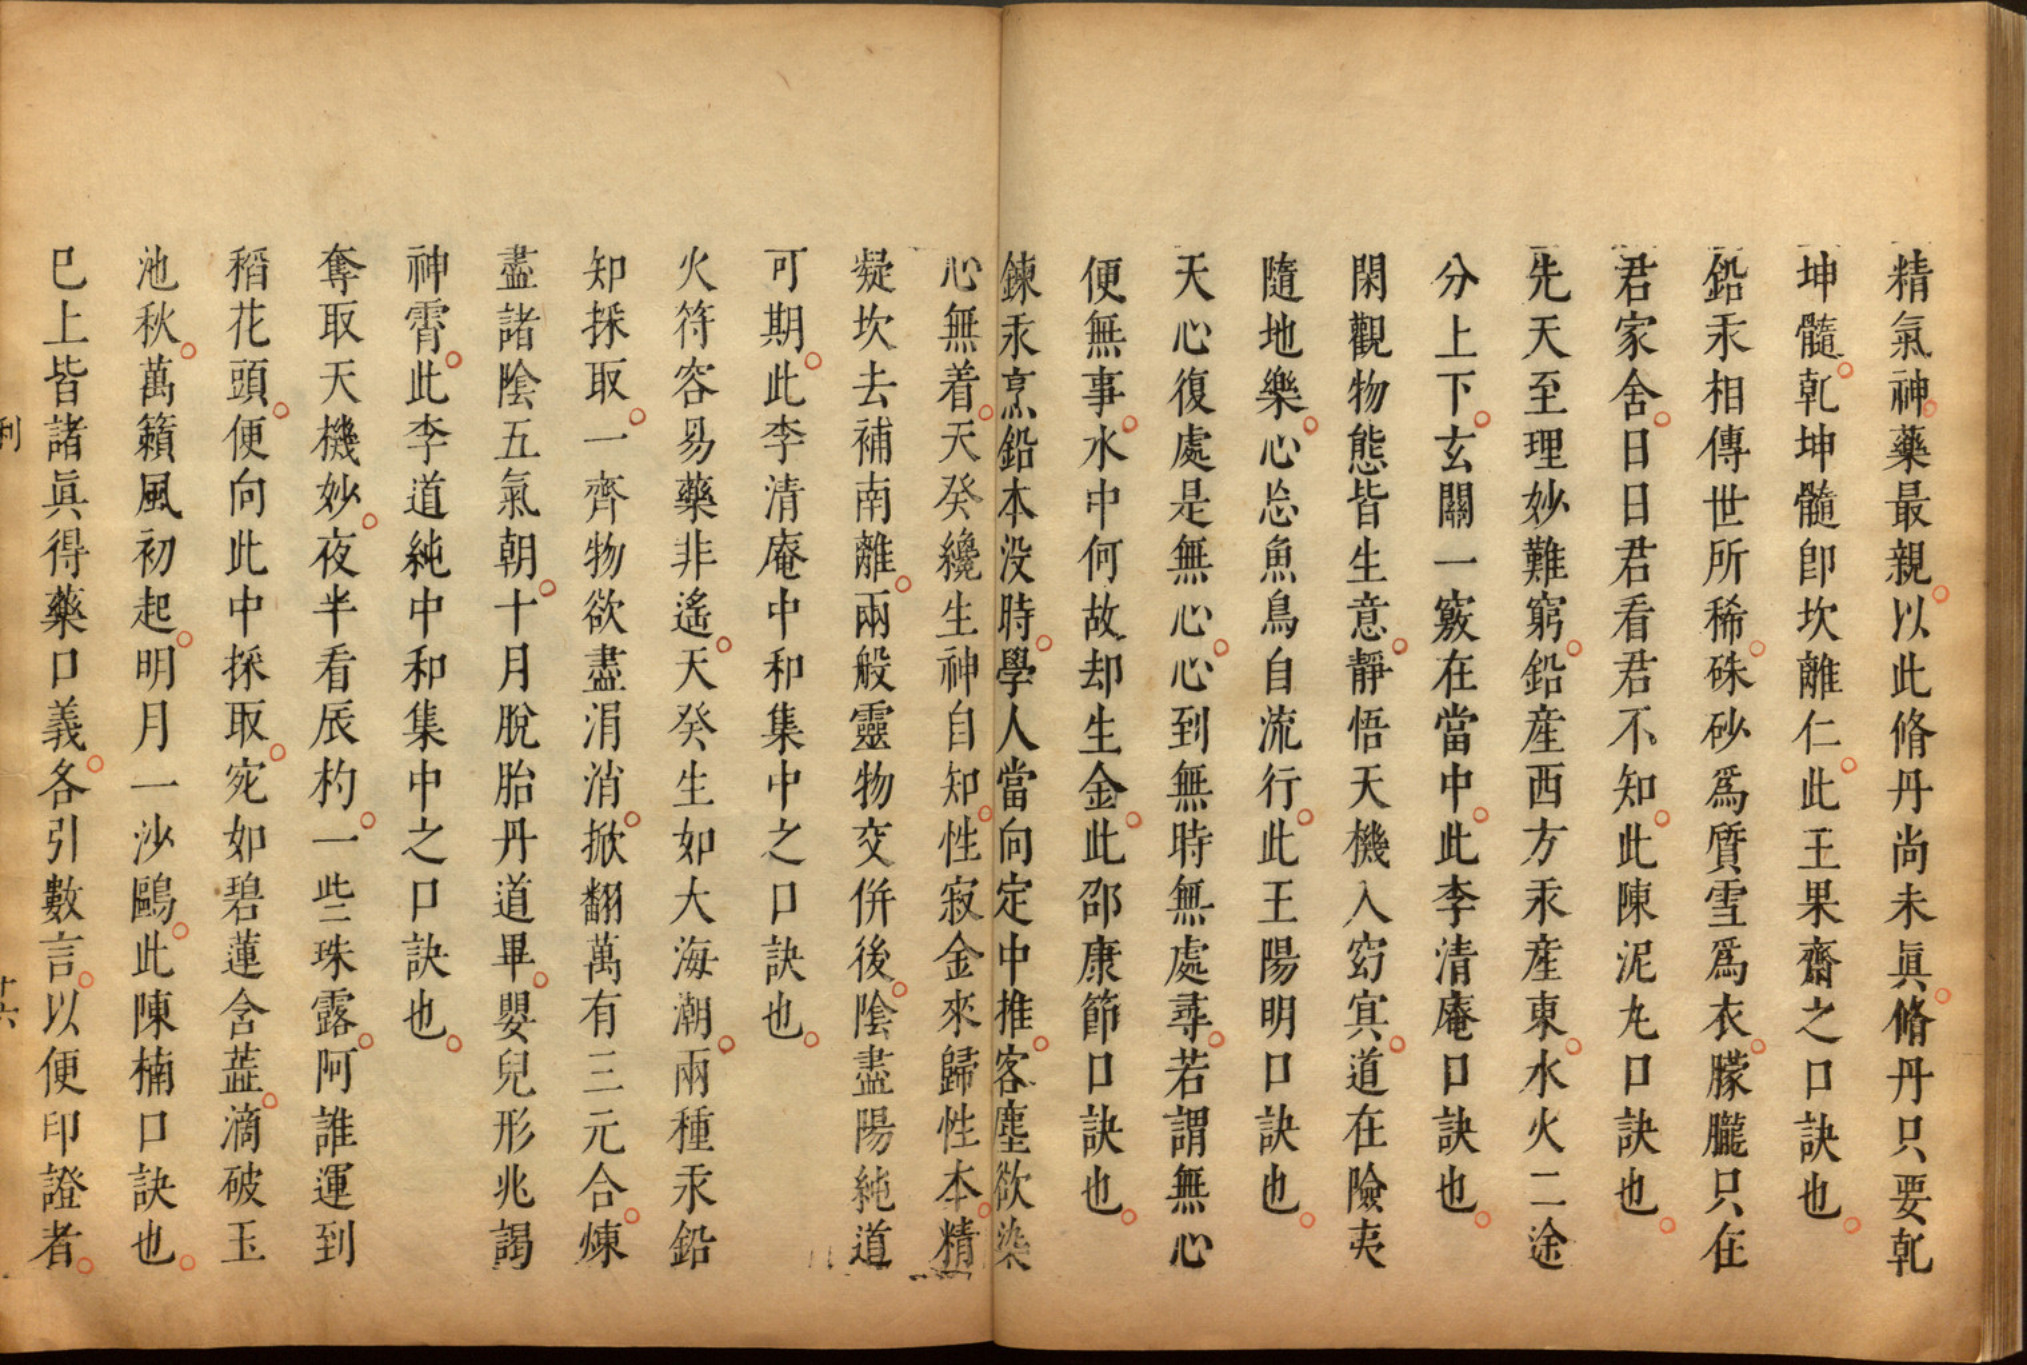 精氣神藥最親。以此脩丹尚未眞。脩丹只要乾
坤髓。乾坤髓卽坎離仁。此王果齋之口訣也。
鉛汞相傳世所稀。硃砂爲質雪爲衣。朦朧只在
君家舍。日日君看君不知。此陳泥丸口訣也。
先天至理妙難窮。鉛産西方汞産東。水火二途
分上下。玄關一竅在當中。此李清庵口訣也。
閑觀物態皆生意。靜悟天機入窈㝠。道在險夷
隨地樂。心忘魚鳥自流行。此王陽明口訣也。
天心復處是無心。心到無時無處尋。若謂無心
便無事。水中何故却生金。此邵康節口訣也。
鍊汞烹鉛本没時。學人當向定中推。客塵欲染
心無着。天癸纔生神自知。性寂金來歸性本。精
凝坎去補南離。兩般靈物交併後。陰盡陽純道
可期。此李清庵中和集中之口訣也。
火符容易藥非遙。天癸生如大海潮。兩種汞鉛
知採取。一齊物欲盡涓消。掀翻萬有三元合。煉
盡諸陰五氣朝。十月脫胎丹道畢。嬰兒形兆謁
神霄。此李道純中和集中之口訣也。
奪取天機妙。夜半看辰杓。一些珠露。阿誰運到
稻花頭。便向此中採取。宛如碧蓮含蕋。滴破玉
池秋。萬籟風初起。明月一沙鷗。此陳楠口訣也。
已上皆諸眞得藥口義。各引數言。以便印證者。
利
十六